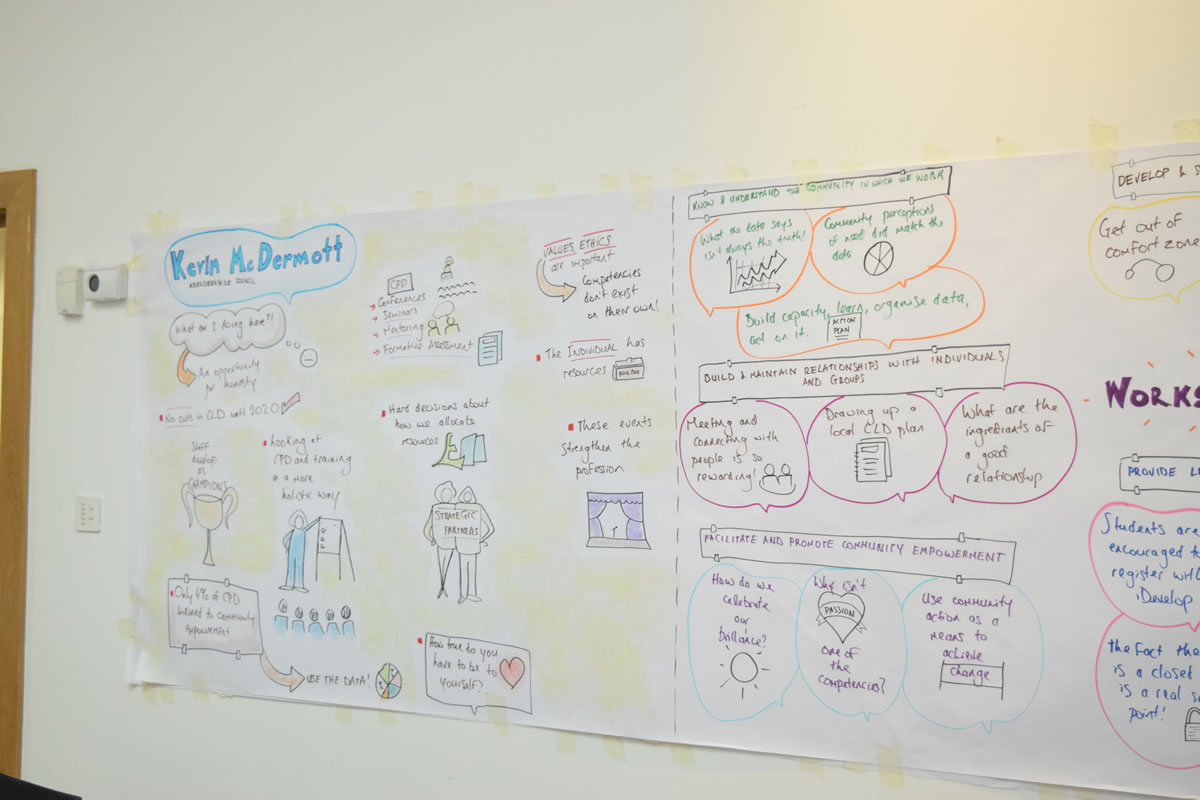 Kevin McDermott
COUNCIL
What am I doing here?!
An opportunity
for honesty
No cuts in CLD until 2020
Staff
develop
as
CHAMPIONS
Looking at
CPD and training
in a more
holistic way
Only 4% of CPD
linked to community
empowerment
USE THE DATA!
CPD
Conferences
Seminars
Mentoring
Formative Assessment
Hard decisions about
how we allocate
resources
STRATEGIC
PARTNERS
How true do you
have to be to
yourself?
VALUES, ETHICS
are important
Competencies
don't exist
on their own!
The INDIVIDUAL has
resources
These events
strengthen the
profession
KNOW & UNDERSTAND THE COMMUNITY IN WHICH WE WORK
What the data says
isn't always the truth!
Community perceptions
of need did match the
data
Build capacity, learn, organise data,
act on it.
ACTION
PLAN
BUILD & MAINTAIN RELATIONSHIPS WITH INDIVIDUALS
AND GROUPS
Meeting and
connecting with
people is so
rewarding!
Drawing up a
local CLD plan
What are the
ingredients of
a good
relationship
FACILITATE AND PROMOTE COMMUNITY EMPOWERMENT
How do we
celebrate
our
brilliance?
Why isn't
PASSION
one of
the
competencies?
Use community
action as a
means to
achieve
change
DEVELOP & S
Get out of
comfort zone
WORKS
PROVIDE LE
Students are
encouraged to
register with
iDevelop
the fact the
is a closet
is a real s
point!